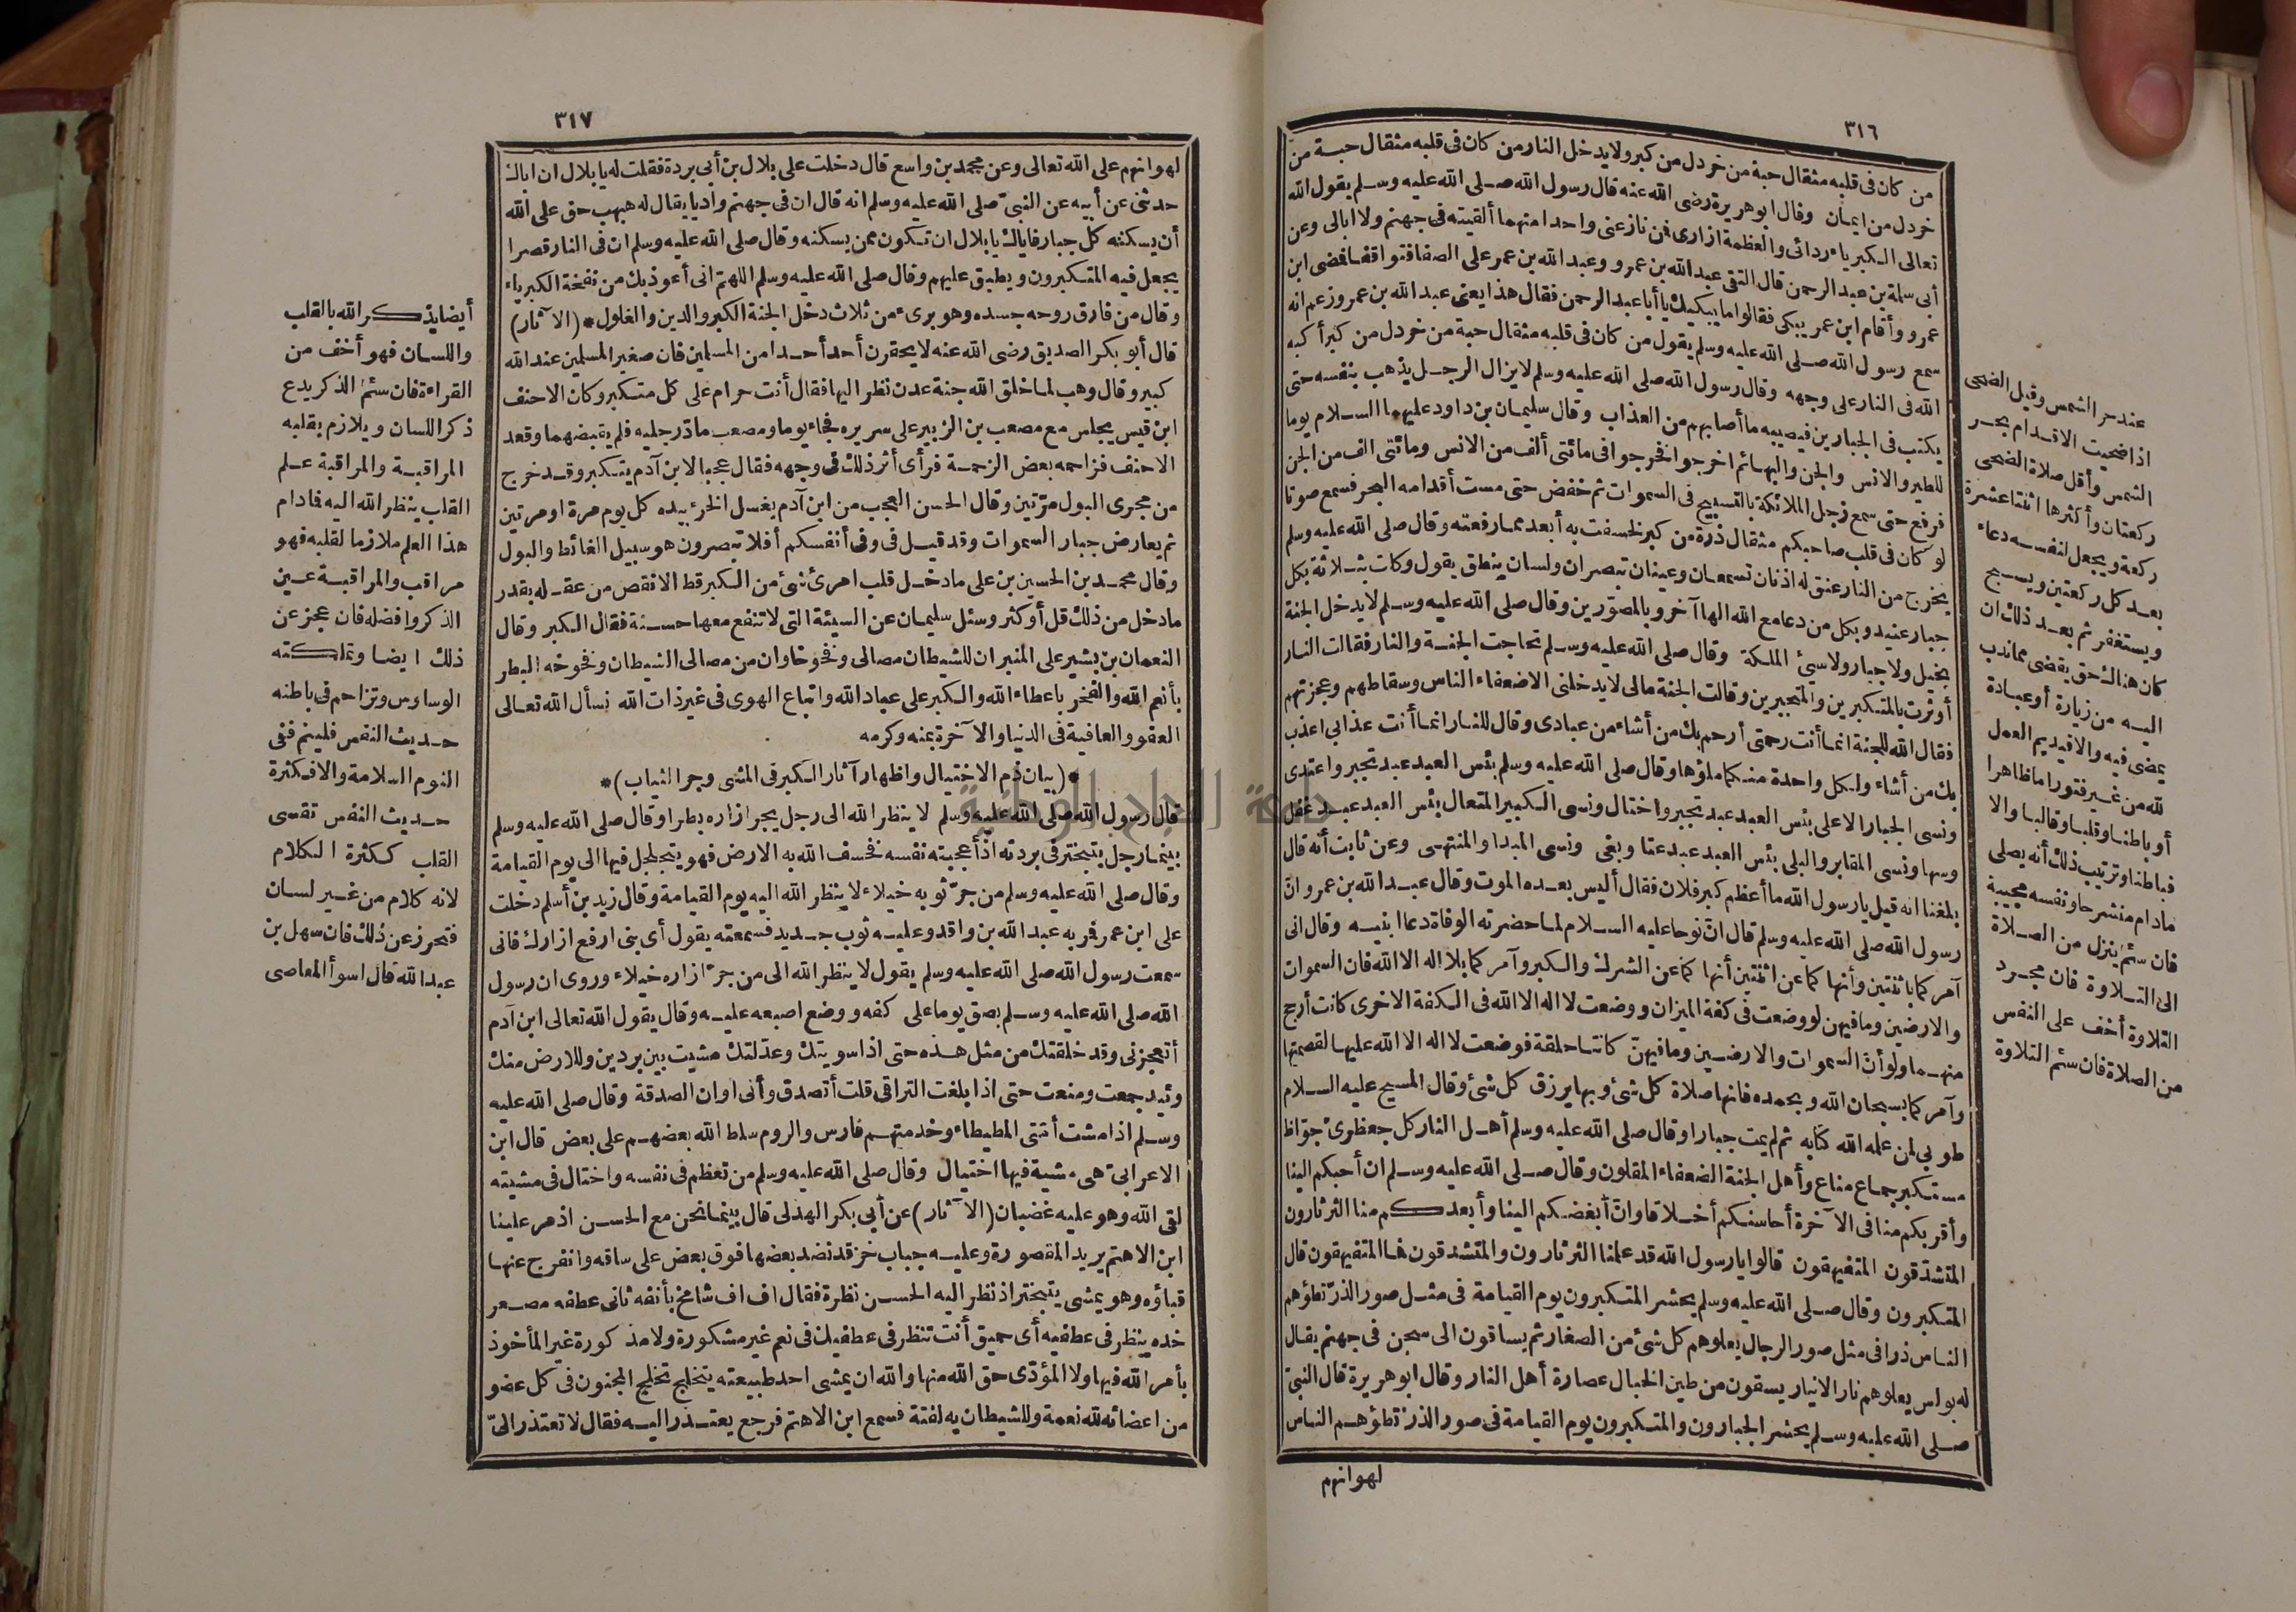 ٣١٦
من كان فى قلبه مثقال حبة من خردل من كبر ولا يدخل النار من كان فى قلبه مثقال حبة من
خردل من ايمان وقال ابو هريرة رضى الله عنه قال رسول الله صلى الله عليه وسلم يقول الله
تعالى الكبرياء ردائى والعظمة ازارى فمن نازعنى واحدا منهما ألقيته فى جهنم ولا ابالى وعن
أبى سلمة بن عبد الرحمن قال التقى عبد الله بن عمرو وعبد الله بن عمر على الصفا فتواقفا فمضى ابن
عمرو وأقام ابن عمر يبكى فقالوا ما يبكيك يا أبا عبد الرحمن فقال هذا يعنى عبد الله بن عمرو زعم انه
سمع رسول الله صلى الله عليه وسلم يقول من كان فى قلبه مثقال حبة من خردل من كبر أكبه
الله فى النار على وجهه وقال رسول الله صلى الله عليه وسلم لا يزال الرجل يذهب بنفسه حتى
يكتب فى الجبارين فيصيبه ما أصابهم من العذاب وقال سليمان بن داود عليهما السلام يوما
للطير والانس والجن والبهائم اخرجوا فخرجوا فى مائتى ألف من الانس ومائتى الف من الجن
فرفع حتى سمع زجل الملائكة بالتسبيح فى السموات ثم خفض حتى مست أقدامه البحر فسمع صوتا
لو كان فى قلب صاحبكم مثقال ذرة من كبر لخسفت به أبعد مما رفعته وقال صلى الله عليه وسلم
يخرج من النار عنق له اذنان تسمعان وعينان تبصران ولسان ينطق يقول وكلت بثلاثة بكل
جبار عنيد وبكل من دعا مع الله الها آخر وبالمصورين وقال صلى الله عليه وسلم لا يدخل الجنة
بخيل ولا جبار ولا سيئ الملكة وقال صلى الله عليه وسلم تحاجت الجنة والنار فقالت النار
أوثرت بالمتكبرين والمتجبرين وقالت الجنة مالى لا يدخلنى الاضعفاء الناس وسقاطهم وعجزتهم
فقال الله للجنة انما أنت رحمتى أرحم بك من أشاء من عبادى وقال للنار انما أنت عذابى اعذب
بك من أشاء ولكل واحدة منكما ملؤها وقال صلى الله عليه وسلم بئس العبد عبد تجبر واعتدى
ونسى الجبار الاعلى بئس العبد عبد تجبر واختال ونسى الكبير المتعال بئس العبد عبد غفل
وسها ونسى المقابر والبلى بئس العبد عبد عتا وبغى ونسى المبدا والمنتهى وعن ثابت أنه قال
بلغنا انه قيل يا رسول الله ما أعظم كبر فلان فقال أليس بعده الموت وقال عبد الله بن عمرو انّ
رسول الله صلى الله عليه وسلم قال انّ نوحا عليه السلام لما حضرته الوفاة دعا ابنيه وقال انى
آمركما باثنتين وأنهاكما عن اثنتين أنهاكما عن الشرك والكبر وآمركما بلا اله الا الله فان السموات
والارضين وما فيهن لو وضعت فى كفة الميزان ووضعت لا اله الا الله فى الكفة الاخرى كانت أرجح
منهما ولو أنّ السموات والارضين وما فيهنّ كانتا حلقة فوضعت لا اله الا الله عليها لقصمتها
وآمركما بسبحان الله وبحمده فانها صلاة كل شئ وبها يرزق كل شئ وقال المسيح عليه السلام
طوبى لمن علمه الله كتابه ثم لم يمت جبارا وقال صلى الله عليه وسلم أهل النار كل جعظرىّ جوّاظ
مستكبر جماع مناع وأهل الجنة الضعفاء المقلون وقال صلى الله عليه وسلم ان أحبكم الينا
وأقربكم منا فى الآخرة أحاسنكم أخلاقا وانّ أبغضكم الينا وأبعدكم منا الثرثارون
المتشدّقون المتفيهقون قالوا يا رسول الله قد علمنا الثرثارون والمتشدقون فما المتفيهقون قال
المتكبرون وقال صلى الله عليه وسلم يحشر المتكبرون يوم القيامة فى مثل صور الذرّ تطؤهم
الناس ذرا فى مثل صور الرجال يعلوهم كل شئ من الصغار ثم يساقون الى سجن فى جهنم يقال
له بولس يعلوهم نار الانيار يسقون من طين الخبال عصارة أهل النار وقال ابو هريرة قال النبىّ
صلى الله عليه وسلم يحشر الجبارون والمتكبرون يوم القيامة فى صور الذرّ تطؤهم الناس
لهوانهم
عند حر الشمس وقيل الضحى
اذا ضحيت الاقدام بحر
الشمس وأقل صلاة الضحى
ركعتان وأكثرها اثنتا عشرة
ركعة ويجعل لنفسه دعاء
بعد كل ركعتين ويسبح
ويستغفر ثم بعد ذلك ان
كان هناك حق يقضى مما ندب
اليه من زيارة أو عيادة
يمضى فيه والا فيديم العمل
لله من غير فتور اما ظاهرا
أو باطنا وقلبا وقالبا والا
فباطنا وترتيب ذلك أنه يصلى
مادام منشرحا ونفسه مجيبة
فان سئم ينزل من الصلاة
الى التلاوة فان مجرد
التلاوة أخف على النفس
من الصلاة فان سئم التلاوة
٣١٧
لهوانهم على الله تعالى وعن محمد بن واسع قال دخلت على بلال بن أبى بردة فقلت له يا بلال ان اباك
حدثنى عن أبيه عن النبىّ صلى الله عليه وسلم انه قال ان فى جهنم واديا يقال له هبهب حق على الله
أن يسكنه كل جبار فاياك يا بلال ان تكون ممن يسكنه وقال صلى الله عليه وسلم ان فى النار قصرا
يجعل فيه المتكبرون ويطبق عليهم وقال صلى الله عليه وسلم اللهم انى أعوذ بك من نفخة الكبرياء
وقال من فارق روحه جسده وهو برىء من ثلاث دخل الجنة الكبر والدين والغلول * (الآثار)
قال أبو بكر الصديق رضى الله عنه لا يحقرن أحد أحدا من المسلمين فان صغير المسلمين عند الله
كبير وقال وهب لما خلق الله جنة عدن نظر اليها فقال أنت حرام على كل متكبر وكان الاحنف
ابن قيس يجلس مع مصعب بن الزبير على سريره فجاء يوما ومصعب مادّ رجليه فلم يقبضهما وقعد
الاحنف فزاحمه بعض الزحمة فرأى أثر ذلك فى وجهه فقال عجبا لابن آدم يتكبر وقد خرج
من مجرى البول مرّتين وقال الحسن العجب من ابن آدم يغسل الخرء بيده كل يوم مرة او مرتين
ثم يعارض جبار السموات وقد قيل فى وفى أنفسكم أفلا تبصرون هو سبيل الغائط والبول
وقال محمد بن الحسين بن على ما دخل قلب امرئ شئ من الكبر قط الا نقص من عقله بقدر
ما دخل من ذلك قل أو كثر وسئل سليمان عن السيئة التى لا تنفع معها حسنة فقال الكبر وقال
النعمان بن بشير على المنبر ان للشيطان مصالى وفخوخا وان من مصالى الشيطان وفخوخه البطر
بأنعم الله والفخر باعطاء الله والكبر على عباد الله واتباع الهوى فى غير ذات الله نسأل الله تعالى
العفو والعافية فى الدنيا والآخرة بمنه وكرمه
* (بيان ذم الاختيال واظهار آثار الكبر فى المشى وجر الثياب) *
قال رسول الله صلى الله عليه وسلم لا ينظر الله الى رجل يجر ازاره بطرا وقال صلى الله عليه وسلم
بينما رجل يتبختر فى بردته اذ أعجبته نفسه فخسف الله به الارض فهو يتجلجل فيها الى يوم القيامة
وقال صلى الله عليه وسلم من جرّ ثوبه خيلاء لا ينظر الله اليه يوم القيامة وقال زيد بن أسلم دخلت
على ابن عمر فمر به عبد الله بن واقد وعليه ثوب جديد فسمعته يقول أى بنى ارفع ازارك فانى
سمعت رسول الله صلى الله عليه وسلم يقول لا ينظر الله الى من جرّ ازاره خيلاء وروى ان رسول
الله صلى الله عليه وسلم بصق يوما على كفه ووضع اصبعه عليه وقال يقول الله تعالى ابن آدم
أتعجزنى وقد خلقتك من مثل هذه حتى اذا سويتك وعدّلتك مشيت بين بردين وللارض منك
وئيد جمعت ومنعت حتى اذا بلغت التراقى قلت أتصدق وأنى اوان الصدقة وقال صلى الله عليه
وسلم اذا مشت أمتى المطيطاء وخدمتهم فارس والروم سلط الله بعضهم على بعض قال ابن
الاعرابىّ هى مشية فيها اختيال وقال صلى الله عليه وسلم من تعظم فى نفسه واختال فى مشيته
لقى الله وهو عليه غضبان (الآثار) عن أبى بكر الهذلى قال بينما نحن مع الحسن اذ مر علينا
ابن الاهتم يريد المقصورة وعليه جباب خز قد نضد بعضها فوق بعض على ساقه وانفرج عنها
قباؤه وهو يمشى يتبختر اذ نظر اليه الحسن نظرة فقال اف اف شامخ بأنفه ثانى عطفه مصعر
خده ينظر فى عطفيه أى حميق أنت تنظر فى عطفيك فى نعم غير مشكورة ولا مذكورة غير المأخوذ
بأمر الله فيها ولا المؤدّى حق الله منها والله ان يمشى احد طبيعته يتخلج تخلج المجنون فى كل عضو
من اعضائه لله نعمة وللشيطان به لفتة فسمع ابن الاهتم فرجع يعتذر اليه فقال لا تعتذر الىّ
أيضا يذكر الله بالقلب
واللسان فهو أخف من
القراءة فان سئم الذكر يدع
ذكر اللسان ويلازم بقلبه
المراقبة والمراقبة علم
القلب ينظر الله اليه فمادام
هذا العلم ملازما لقلبه فهو
مراقب والمراقبة عين
الذكر وافضله فان عجز عن
ذلك ايضا وتملكته
الوساوس وتزاحم فى باطنه
حديث النفس فلينم ففى
النوم السلامة والا فكثرة
حديث النفس تقسى
القلب ككثرة الكلام
لانه كلام من غير لسان
فتحرز عن ذلك فان سهل بن
عبد الله قال اسوأ المعاصى
جامعة النجاح الوطنية